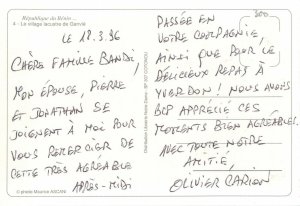 République du Bénin...
4 - Le village lacustre de Ganvié
LE 18.3.96
CHÈRE FAMILLE BANDI,
MON ÉPOUSE, PIERRE
ET JONATHAN SE
JOIGNENT À MOI POUR
VOUS REMERCIER DE
CETTE TRÈS AGRÉABLE
APRÈS-MIDI
© photo Maurice ASCANI
PASSÉE EN
VOTRE COMPAGNIE,
AINSI QUE POUR LE
DÉLICIEUX REPAS À
YVERDON! NOUS AVONS
BCP APPRÉCIÉ CES
MOMENTS BIEN AGRÉABLES.
AVEC TOUTE NOTRE
AMITIÉ,
OLIVIER